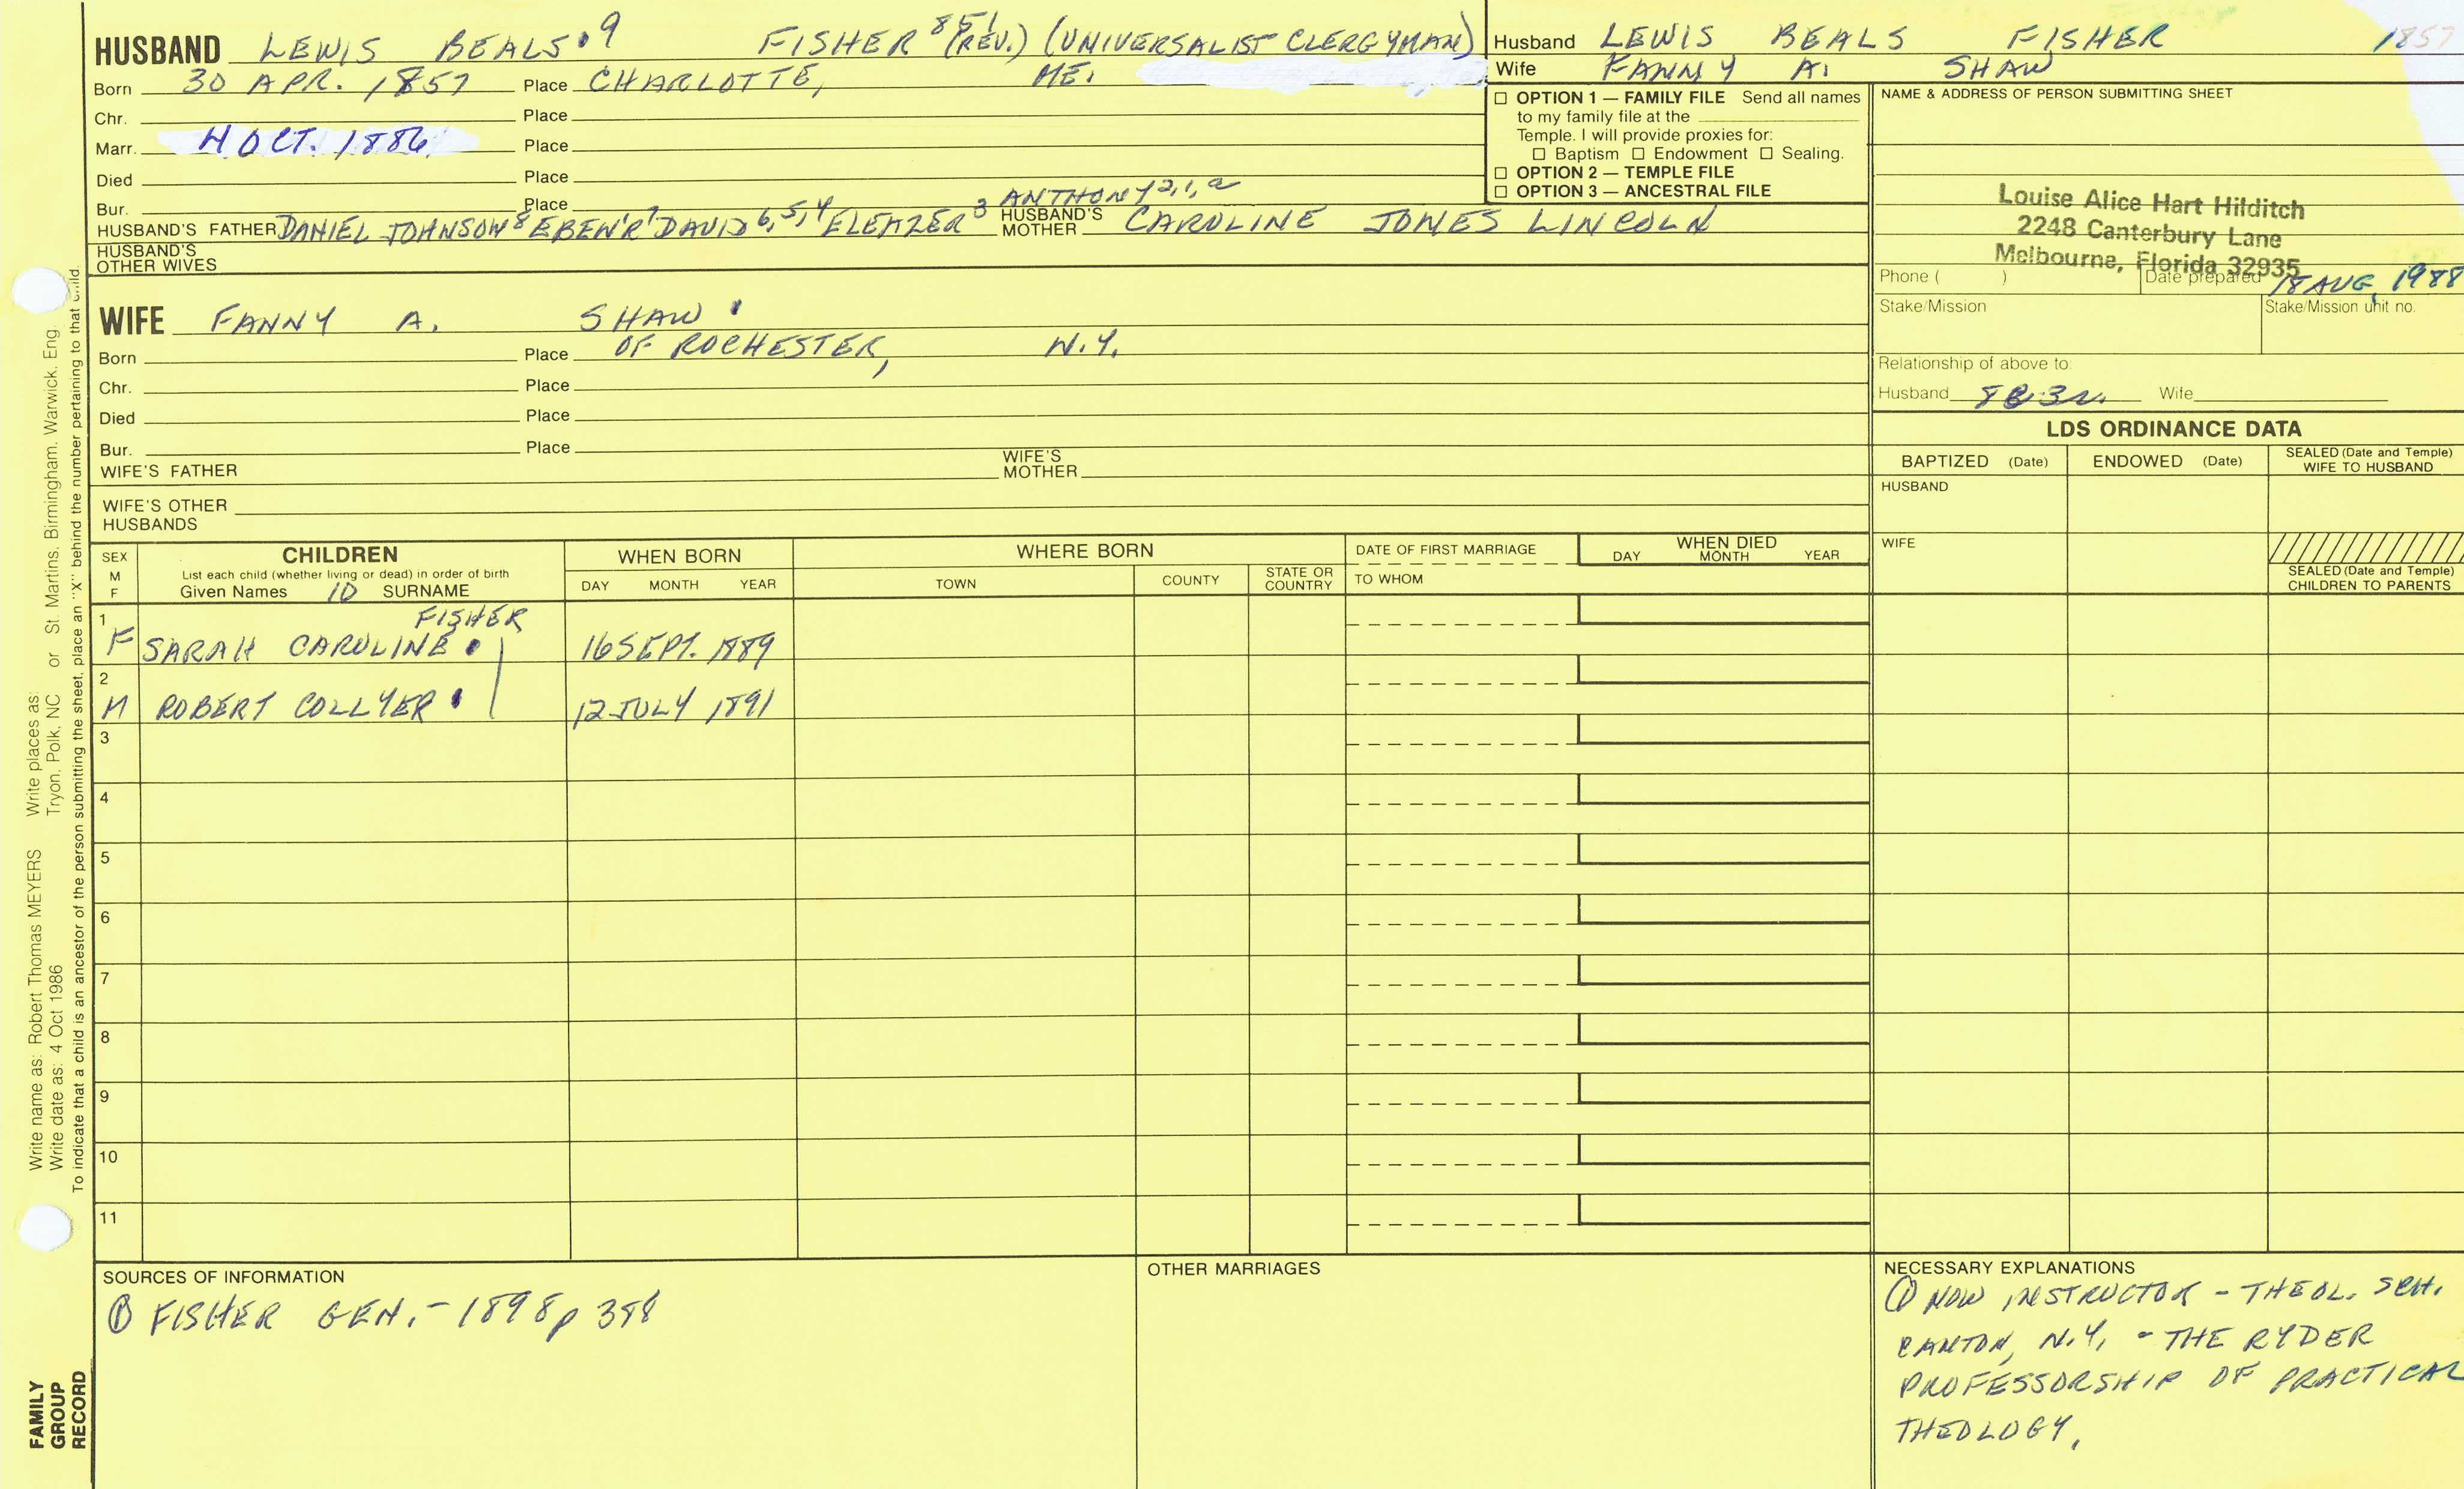 HUSBAND LEWIS BEALS 9 FISHER 851 (REV.) (UNIVERSALIST CLERGYMAN)
Born 30 APR. 1857 Place CHARLOTTE, ME.
Chr. Place
Marr. 4 OCT. 1886 Place
Died Place
Bur. Place
HUSBAND'S FATHER DANIEL JOHNSON 8 EBEN'R 7 DAVID 6,5,4 ELEAZER 3 ANTHONY 2,1,a HUSBAND'S MOTHER CAROLINE JONES LINCOLN
HUSBAND'S OTHER WIVES
WIFE FANNY A. SHAW
Born Place OF ROCHESTER, N.Y.
Chr. Place
Died Place
Bur. Place
WIFE'S FATHER WIFE'S MOTHER
WIFE'S OTHER HUSBANDS
Husband LEWIS BEALS FISHER 1857
Wife FANNY A. SHAW
□ OPTION 1 — FAMILY FILE Send all names
to my family file at the
Temple. I will provide proxies for:
□ Baptism □ Endowment □ Sealing.
□ OPTION 2 — TEMPLE FILE
□ OPTION 3 — ANCESTRAL FILE
NAME & ADDRESS OF PERSON SUBMITTING SHEET
Louise Alice Hart Hilditch
2248 Canterbury Lane
Melbourne, Florida 32935
Phone ( ) Date prepared 18 AUG, 1988
Stake/Mission Stake/Mission unit no.
Relationship of above to:
Husband Wife
LDS ORDINANCE DATA
BAPTIZED (Date) ENDOWED (Date) SEALED (Date and Temple) WIFE TO HUSBAND
HUSBAND
WIFE
SEALED (Date and Temple) CHILDREN TO PARENTS
SEX M F
CHILDREN
List each child (whether living or dead) in order of birth
Given Names 10 SURNAME
WHEN BORN
DAY MONTH YEAR
WHERE BORN
TOWN COUNTY STATE OR COUNTRY
DATE OF FIRST MARRIAGE
TO WHOM
WHEN DIED
DAY MONTH YEAR
FISHER
1 F SARAH CAROLINE 16 SEPT. 1889
2 M ROBERT COLLYER 12 JULY 1891
3
4
5
6
7
8
9
10
11
SOURCES OF INFORMATION
① FISHER GEN. - 1898 p 388
OTHER MARRIAGES
NECESSARY EXPLANATIONS
① NOW INSTRUCTOR - THEOL. SCH.
CANTON, N.Y. - THE RYDER
PROFESSORSHIP OF PRACTICAL
THEOLOGY.
Write name as: Robert Thomas MEYERS Write places as:
Write date as: 4 Oct 1986 Tryon, Polk, NC or St. Martins, Birmingham, Warwick, Eng.
To indicate that a child is an ancestor of the person submitting the sheet, place an "X" behind the number pertaining to that child.
FAMILY
GROUP
RECORD